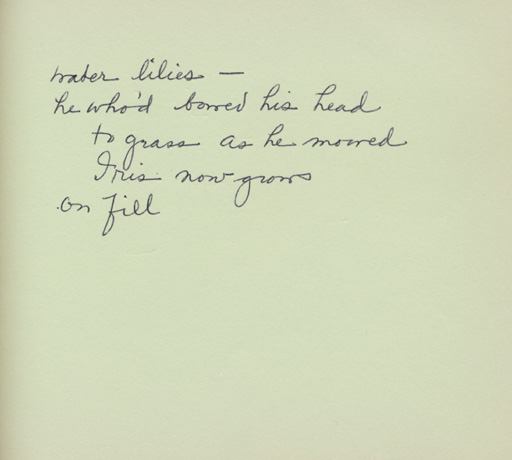 water lilies —
he who'd bowed his head
to grass as he mowed
Iris now grows
on fill